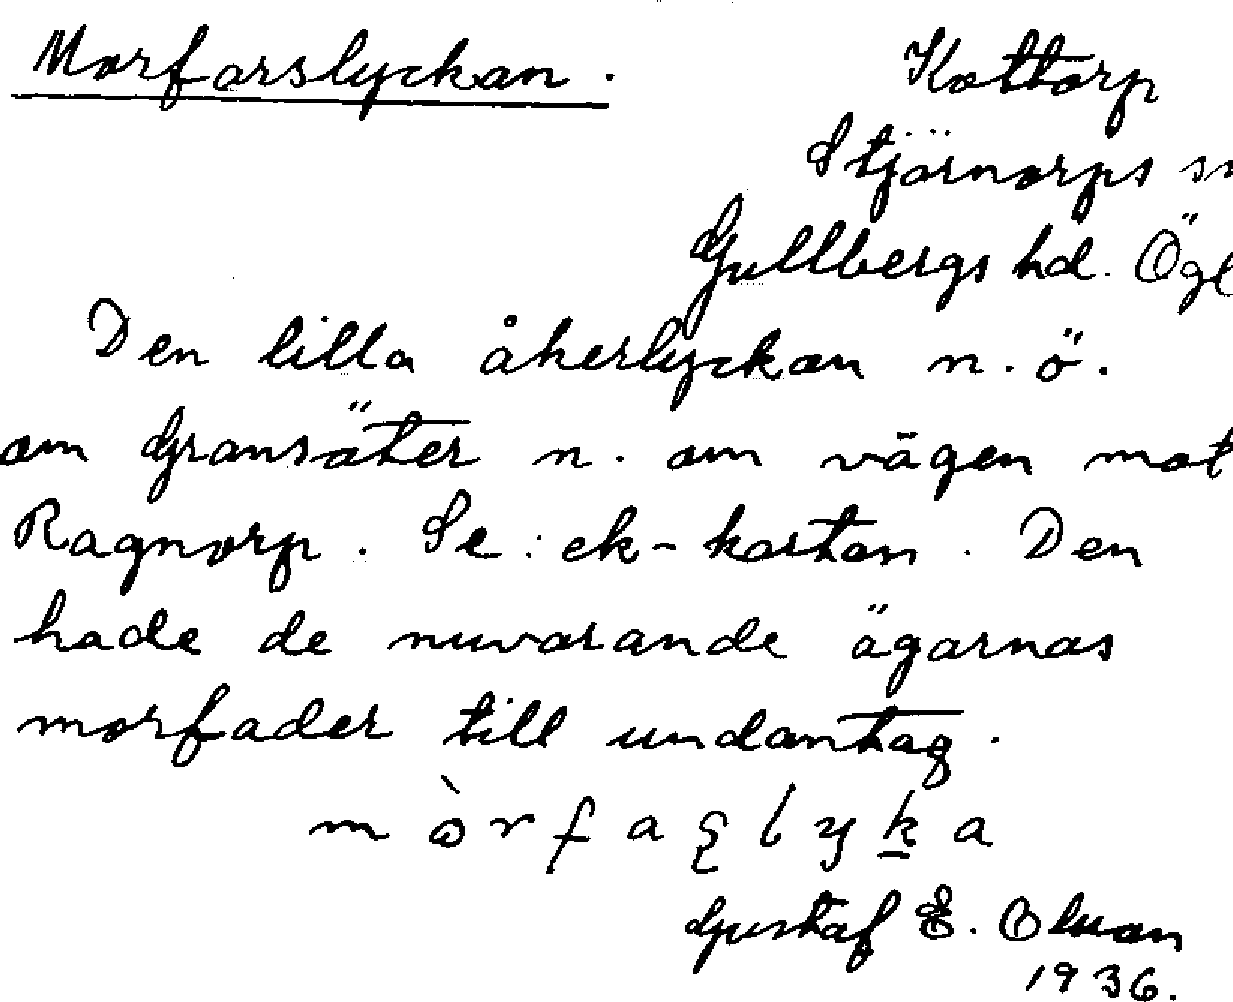 Morfarslyckan.
Kottorp
Stjärnorps sn
Gullbergs hd. Ögl
Den lilla åkerlyckan n.ö.
om Gransäter n. om vägen mot
Ragnorp. Se: ek-kartan. Den
hade de nuvarande ägarnas
morfader till undantag.
Gustaf E.
1936.